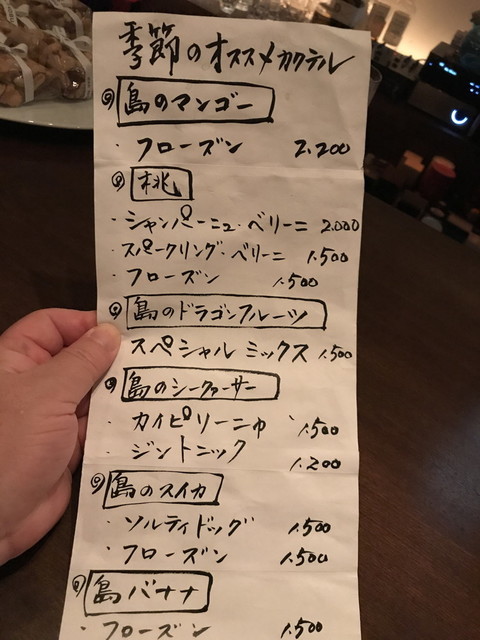 季節のオススメカクテル
◎ 島のマンゴー
・フローズン 2.200
◎ 桃
・シャンパーニュ・ベリーニ 2.000
・スパークリング・ベリーニ 1.500
・フローズン 1.500
◎ 島のドラゴンフルーツ
・スペシャルミックス 1.500
◎ 島のシークァーサー
・カイピリーニャ 1.500
・ジントニック 1.200
◎ 島のスイカ
・ソルティドッグ 1.500
・フローズン 1.500
◎ 島バナナ
・フローズン 1.500